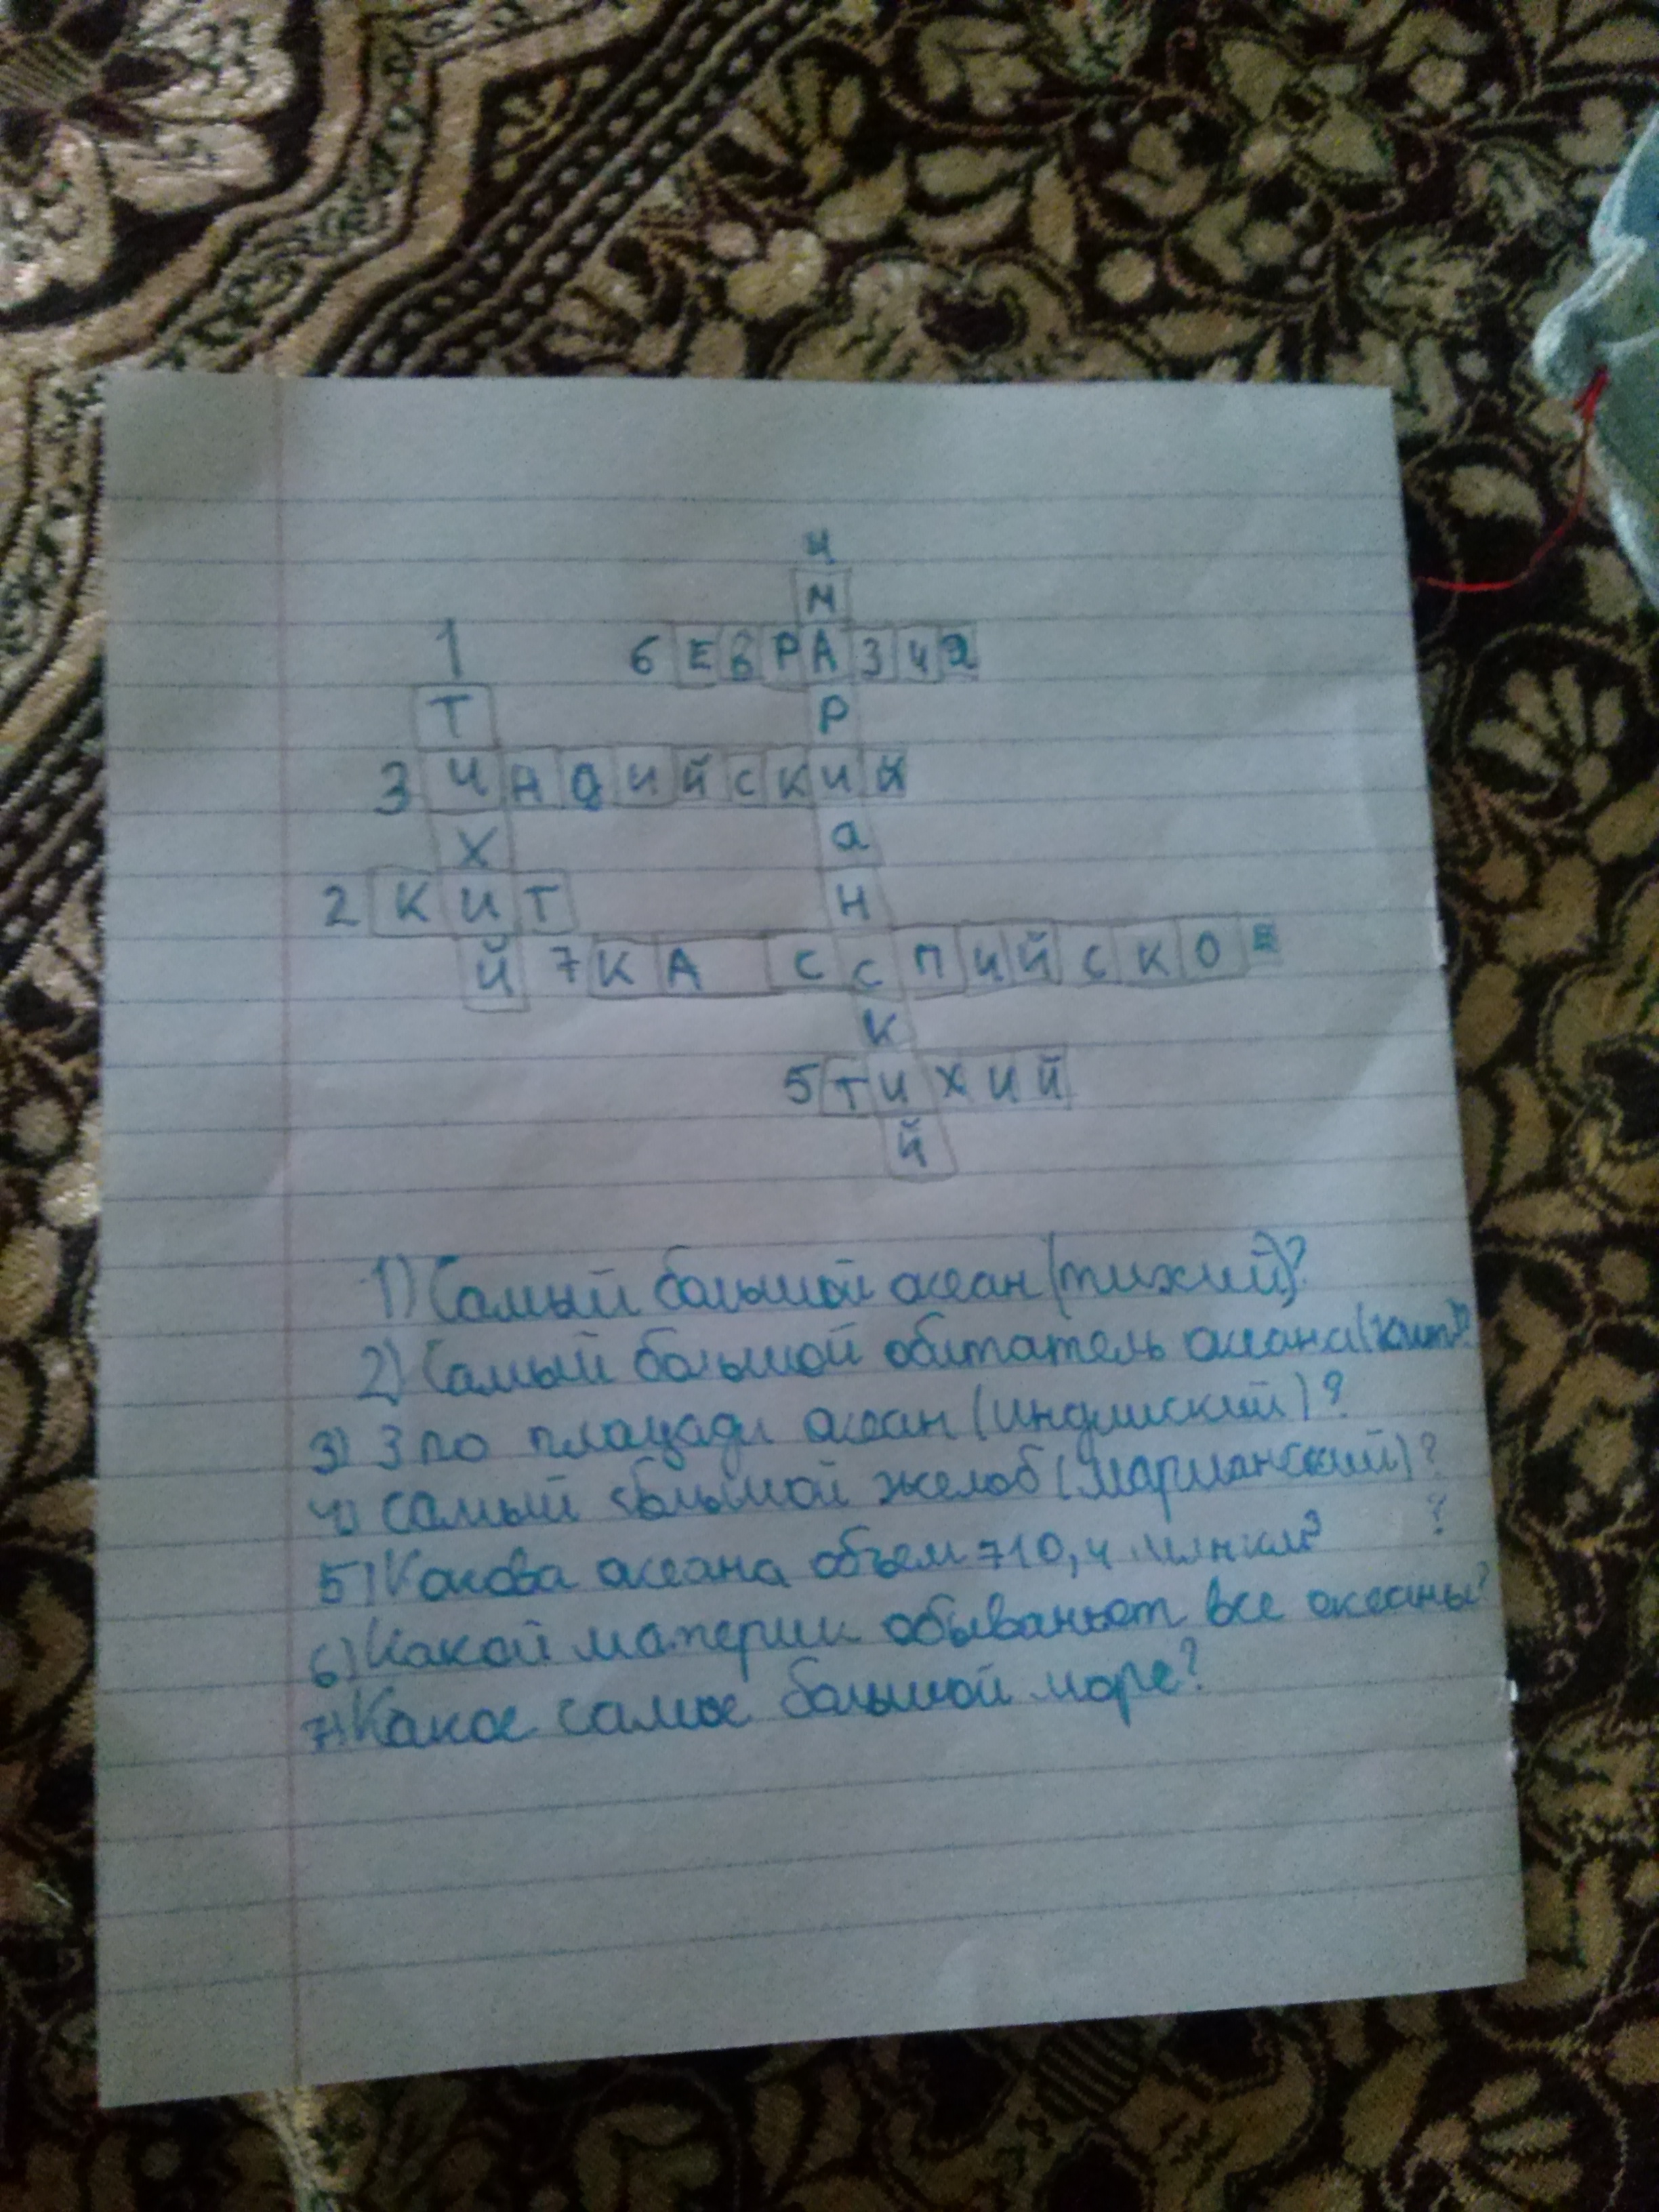 4
М
1
6 ЕВРАЗИЯ
Т
Р
3 ИНДИЙСКИЙ
Х
а
2 КИТ
Н
Й
7 КА ССПИЙСКОЕ
К
5 ТИХИЙ
Й
1) Самый большой океан (тихий)?
2) Самый большой обитатель океана (кит)?
3) 3 по площади океан (индийский)?
4) самый большой желоб (марианский)?
5) Какова океана объем 710,4 млн км³ ?
6) Какой материк обывањот все океаны?
7) Какое самое большой море?